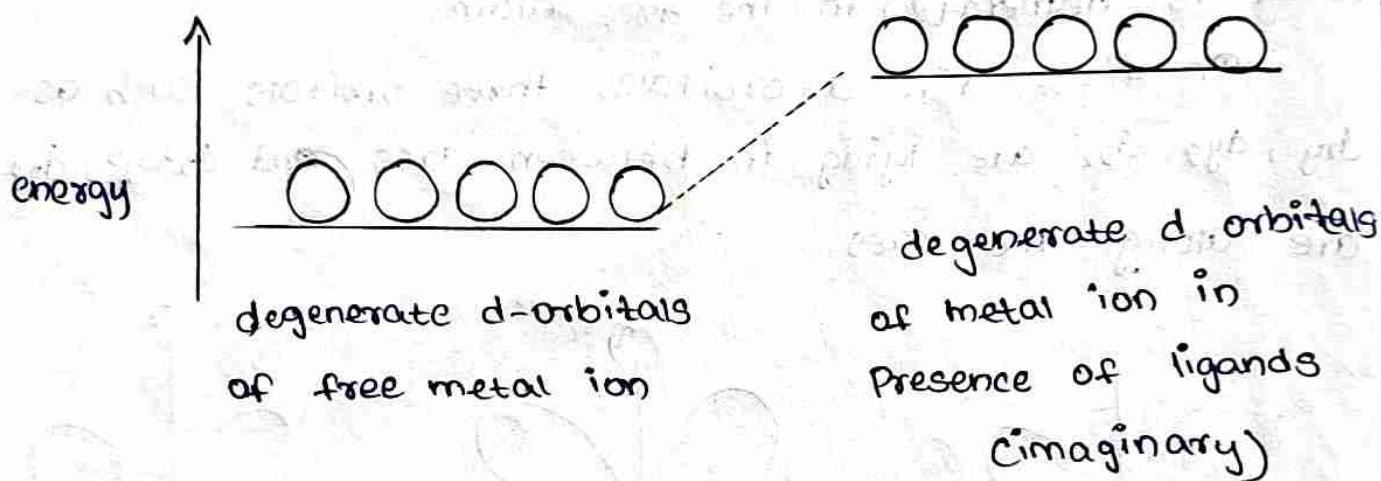 energy
degenerate d-orbitals
of free metal ion
degenerate d orbitals
of metal ion in
Presence of ligands
(imaginary)